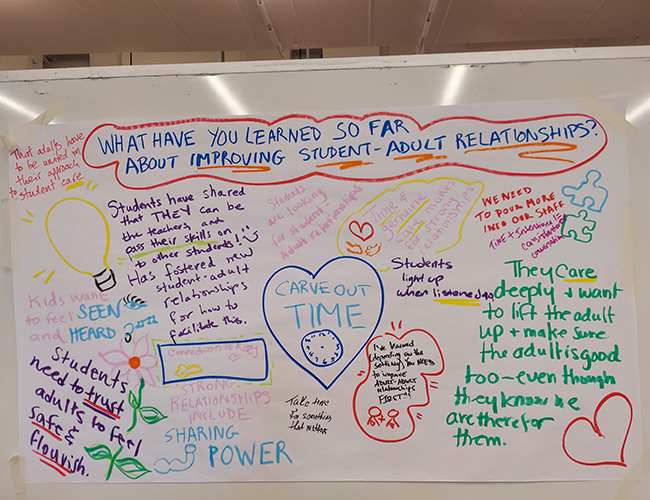 WHAT HAVE YOU LEARNED SO FAR
ABOUT IMPROVING STUDENT-ADULT RELATIONSHIPS?
That adults have
to be united in
their approach
to student care
Students have shared
that THEY can be
the teachers, and
pass their skills on
to other students!
Has fostered new
student-adult
relationships
for how to
facilitate this.
Students
are looking
for student
Adult relationships
Time &
genuine
care makes
for strong
relationships
WE NEED
TO POUR MORE
INTO OUR STAFF
TIME +
Students
light up
when listened to
Kids want
to feel SEEN
and HEARD
CARVE OUT
TIME
They Care
deeply + want
to lift the adult
up + make sure
the adult is good
too-even though
they know we
are there for
them.
Students
need to trust
adults to feel
safe &
flourish.
Connection is key
STRONG
RELATIONSHIPS
INCLUDE
SHARING
POWER
Take time
for something
that matters
I've learned
(depending on the
setting) you NEED
to improve
ADULT-ADULT
relationships
FIRST!